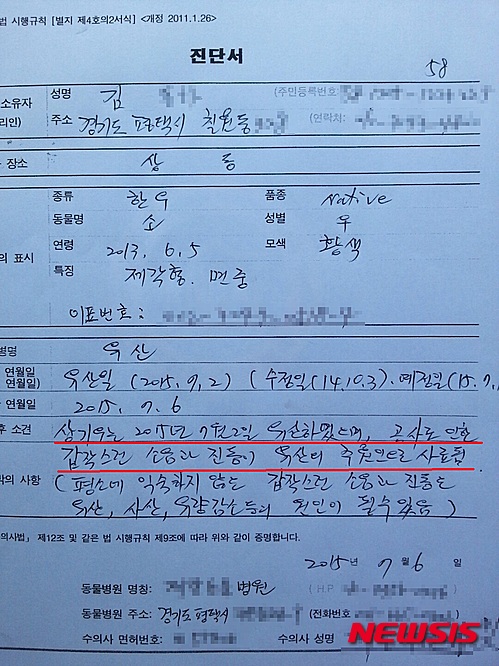 법 시행규칙 [별지 제4호의2서식] <개정 2011.1.26>
진단서
58
소유자 성명 김 (주민등록번호:
리인) 주소 경기도 평택시 칠원동 (연락처:
장소 상 동
종류 한우 품종 native
동물명 소 성별 우
의 표시 연령 2013. 6. 5 모색 황색
특징 제각형. 면중
이표번호:
병명 유산
연월일 유산일 (2015. 7. 2) (수정일 (14. 10. 3). 예정일 (15. 7.
연월일)
연월일 2015. 7. 6
후 소견 상기우는 2015년 7월 2일 유산하였으며, 공사로 인한
갑작스런 소음과 진동이 유산의 주원인으로 사료됨
의 사항 (평소에 익숙하지 않는 갑작스런 소음과 진동도
유산, 사산, 유량감소등의 원인이 될수있음)
의사법」 제12조 및 같은 법 시행규칙 제9조에 따라 위와 같이 증명합니다.
2015년 7월 6일
동물병원 명칭: 병원 (H.P
동물병원 주소: 경기도 평택시 (전화번호
수의사 면허번호: 수의사 성명
NEWSIS